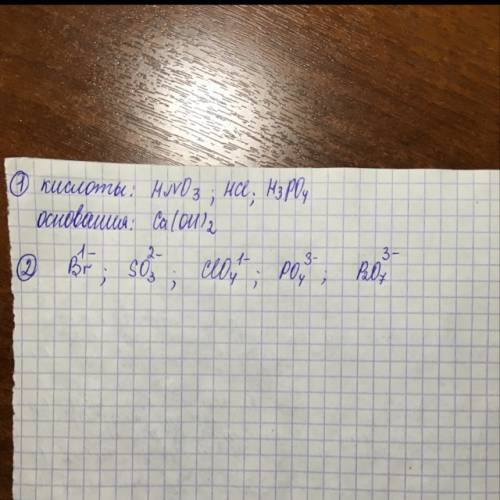 ① кислоты: HNO₃; HCl; H₃PO₄
основания: Ca(OH)₂
② Br¹⁻; SO₃²⁻; ClO₄¹⁻; PO₄³⁻; P₂O₇³⁻